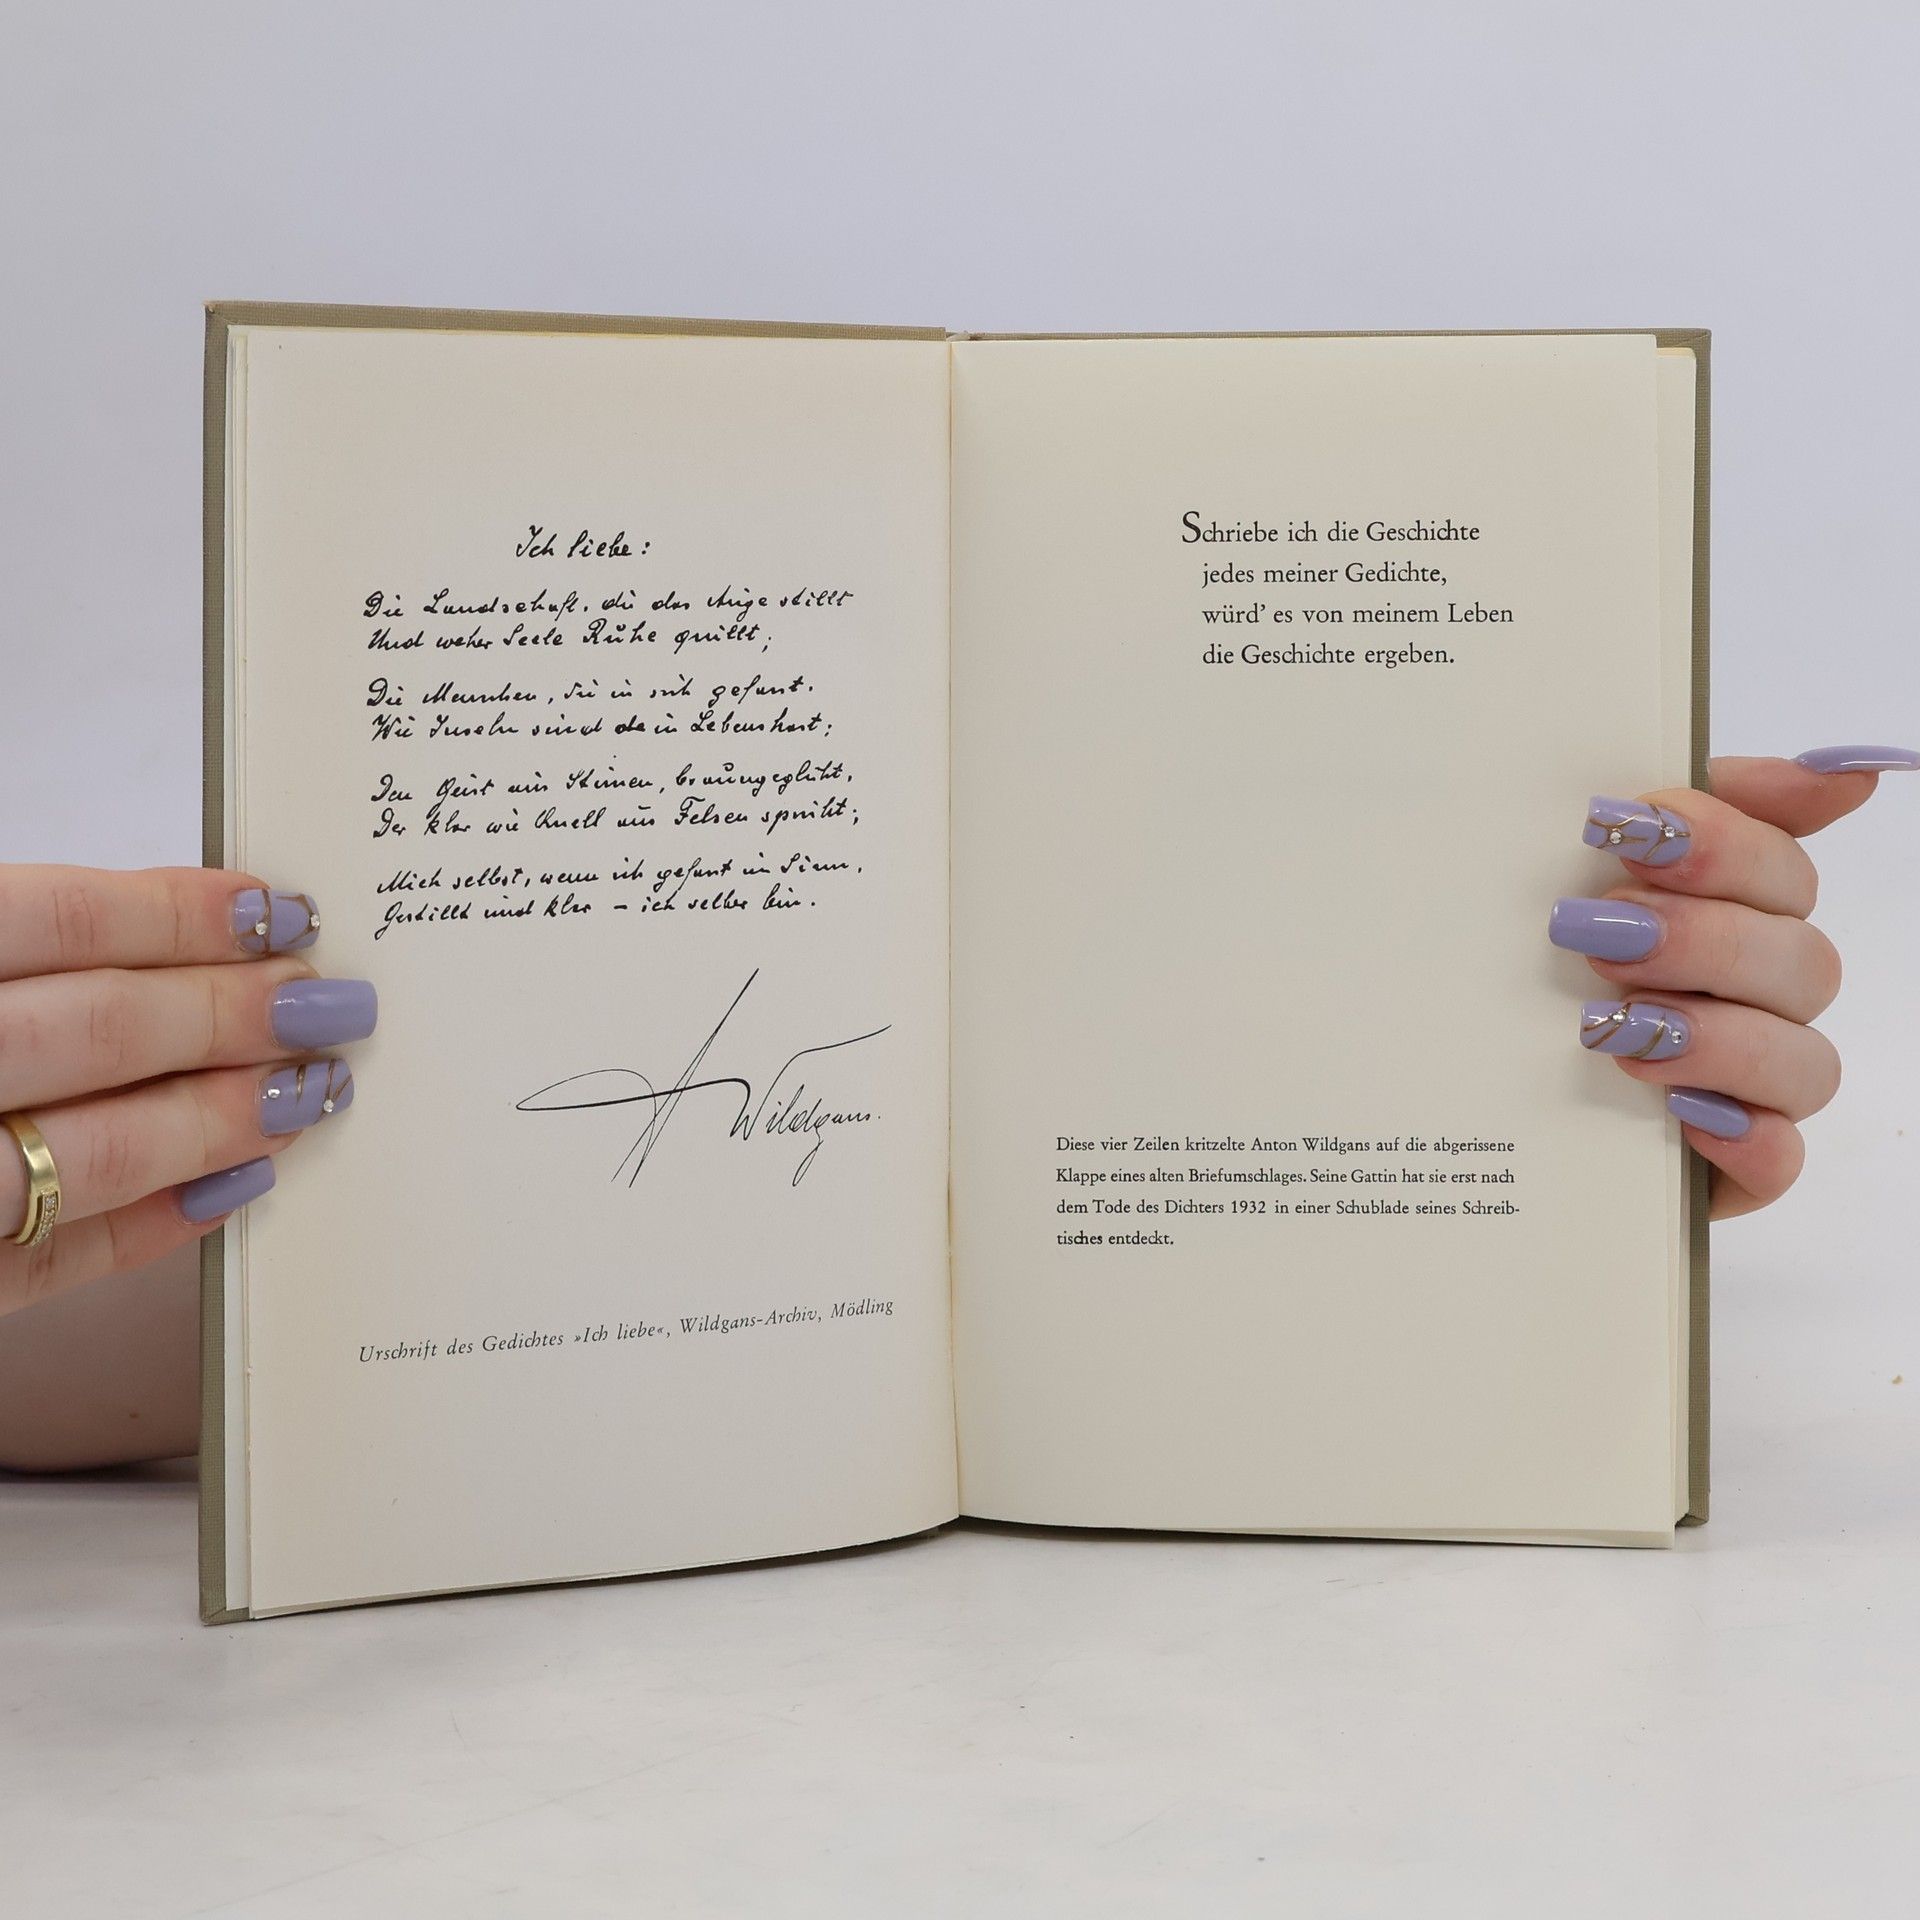 Ich liebe:
Die Landschaft, die das Auge stillt
Und weher Seele Ruhe quillt;
Die Menschen, die in sich gefasst,
Wie Inseln sind da in Lebenshast;
Den Geist aus Stirnen, braungeglüht,
Der klar wie Quell aus Felsen sprüht;
Mich selbst, wenn ich gefasst im Sinn,
Gestillt und klar – ich selber bin.
A Wildgans.
Urschrift des Gedichtes »Ich liebe«, Wildgans-Archiv, Mödling
Schriebe ich die Geschichte
jedes meiner Gedichte,
würd' es von meinem Leben
die Geschichte ergeben.
Diese vier Zeilen kritzelte Anton Wildgans auf die abgerissene
Klappe eines alten Briefumschlages. Seine Gattin hat sie erst nach
dem Tode des Dichters 1932 in einer Schublade seines Schreib-
tisches entdeckt.